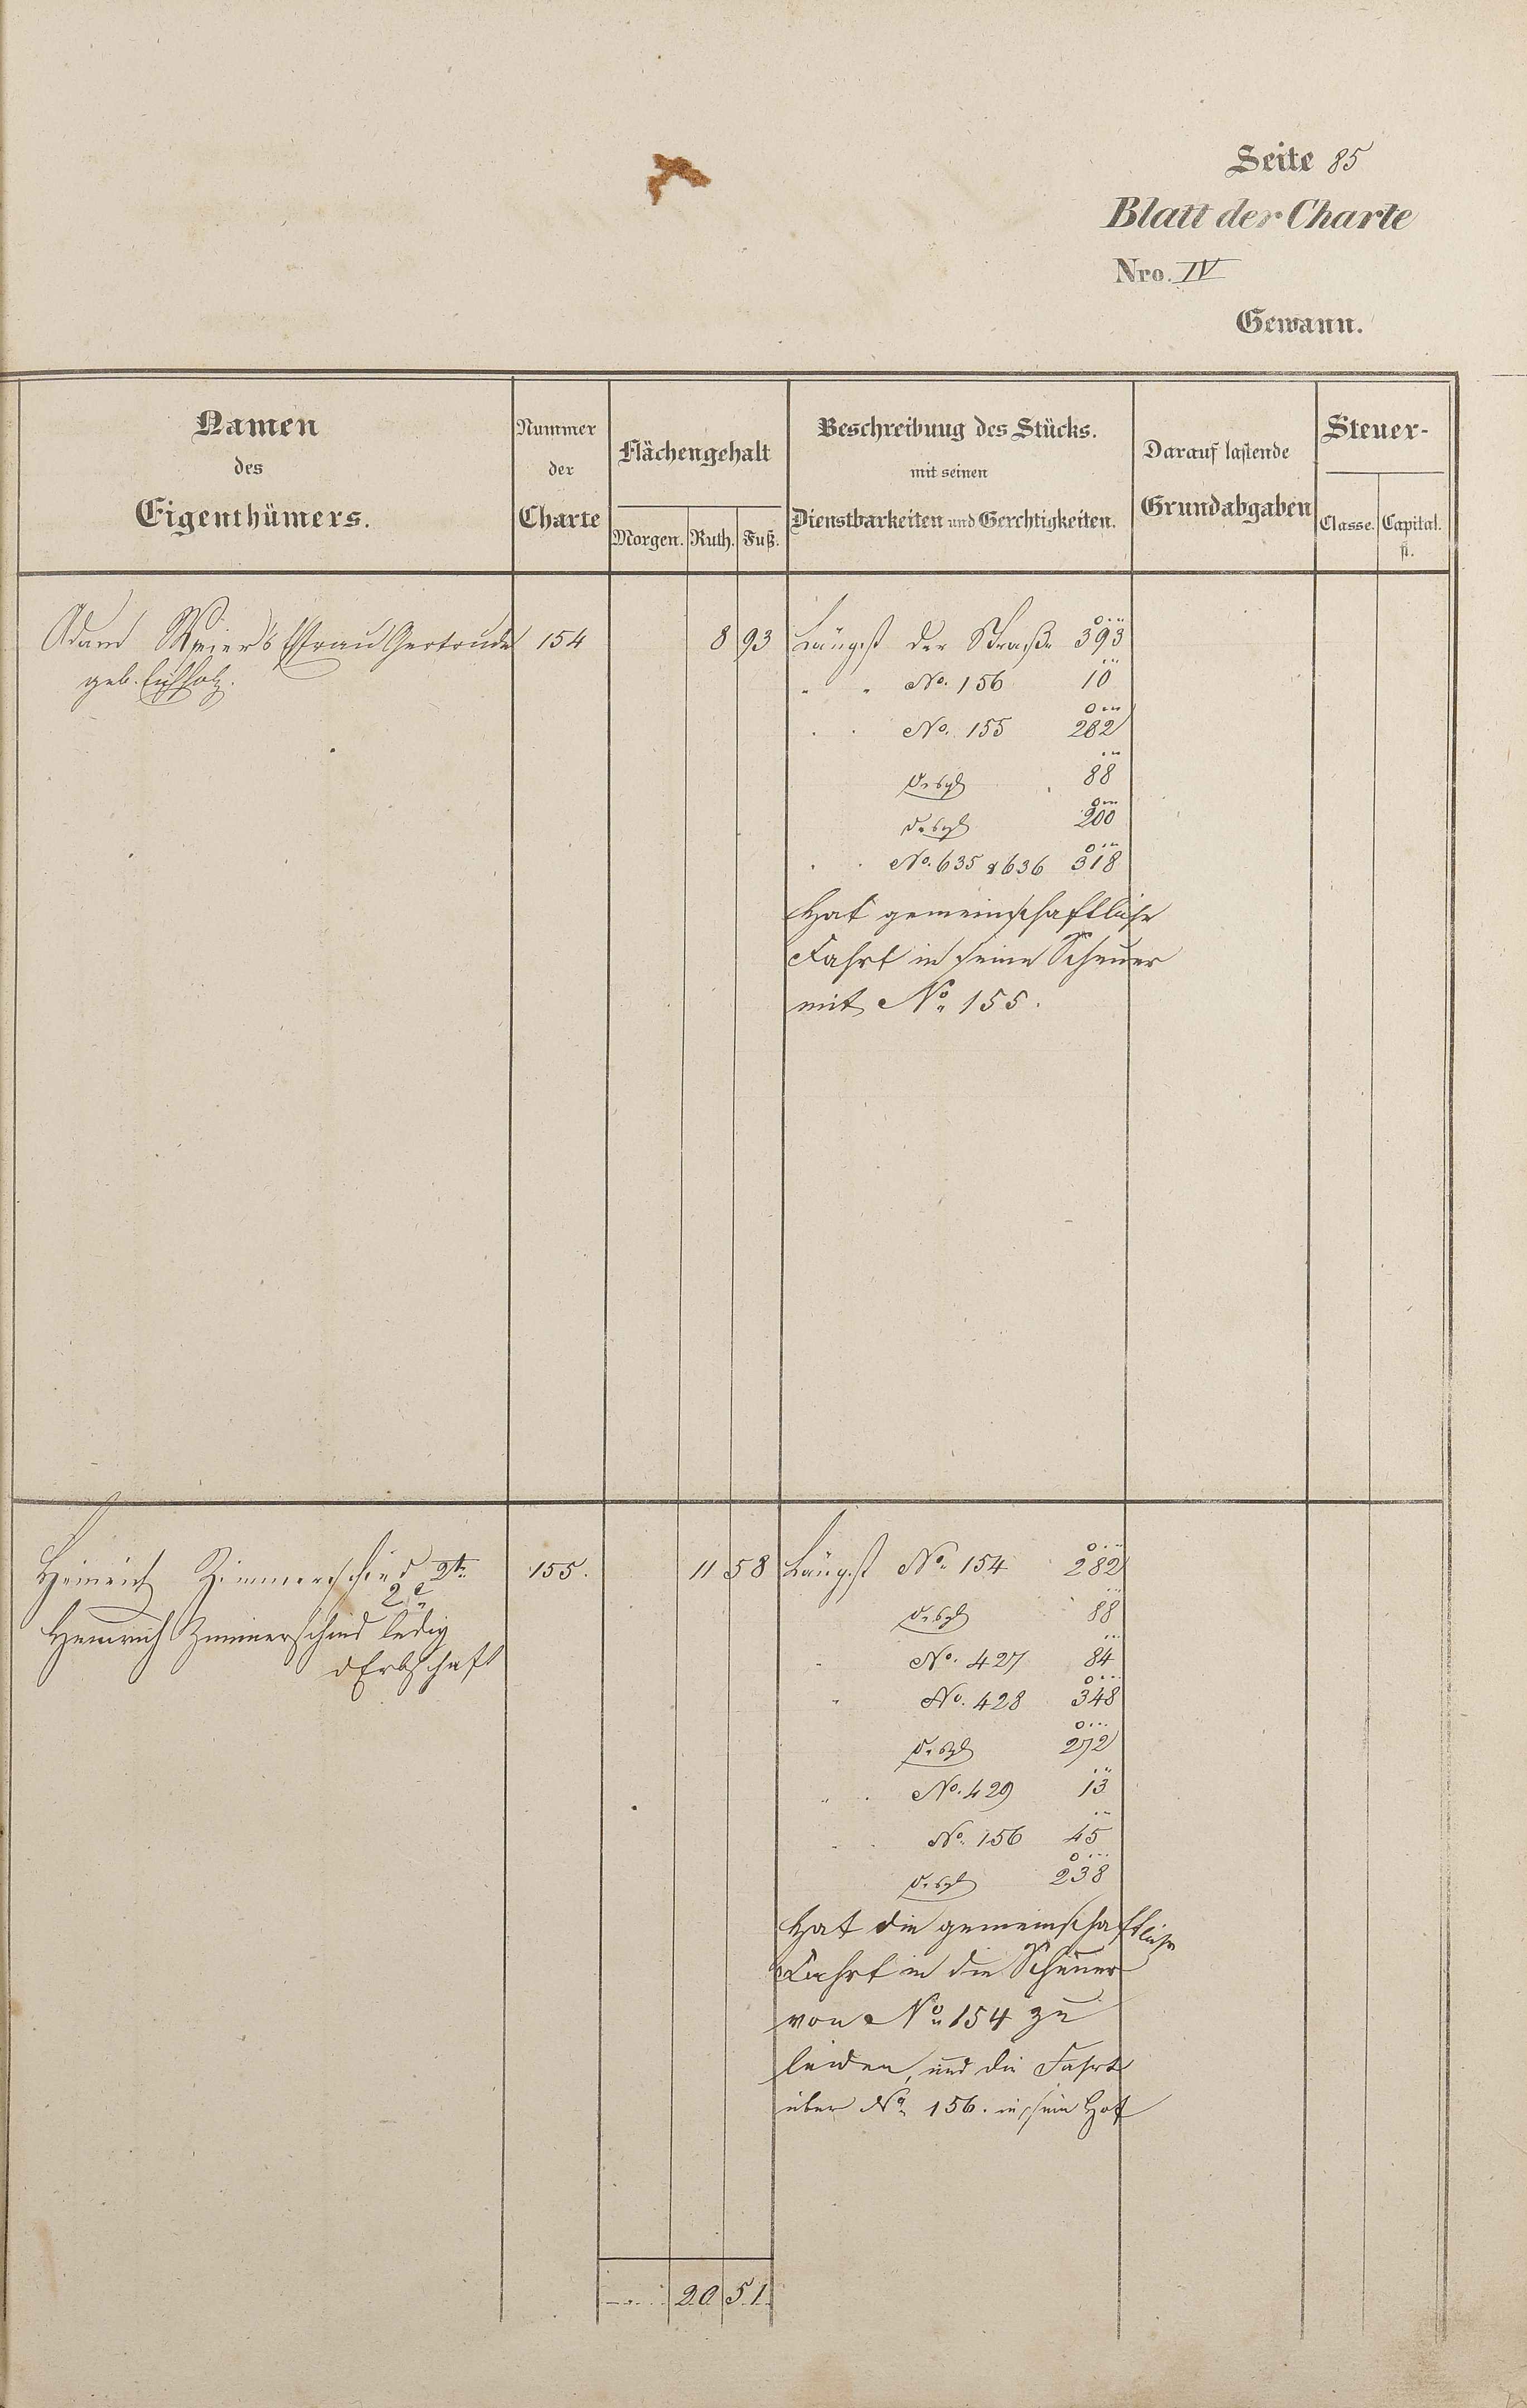 Seite 85
Blatt der Charte
Nro. IV
Gewann.
Namen
des
Eigenthümers.
Nummer
der
Charte
Flächengehalt
Morgen. Ruth. Fuß.
Beschreibung des Stücks.
mit seinen
Dienstbarkeiten und Gerchtigkeiten.
Darauf lastende
Grundabgaben
Steuer-
Classe. Capital.
fl.
Adam Meier's Ehfrau Gertrude 154 8 93 Längst der Straße 393
geb. Eichholz.
" " No. 156 10
" " No. 155 282
desgl 88
desgl 200
" " No. 635 & 636 318
Hat gemeinschaftliche
Fahrt in seine Scheuer
mit No. 155.
Heinrich Zimmerschied 2te 155. 11 58 Längst No. 154 282
2e
desgl 88
Heinrich Zimmerschied ledig
" No. 427 84
d Erbschaft
" No. 428 348
desgl 272
" " No. 429 13
" " No. 156 45
desgl 238
Hat die gemeinschaftliche
Fahrt in die Scheuer
von No. 154 zu
leiden, und die Fahrt
über No. 156. in sein Hof
20 51.